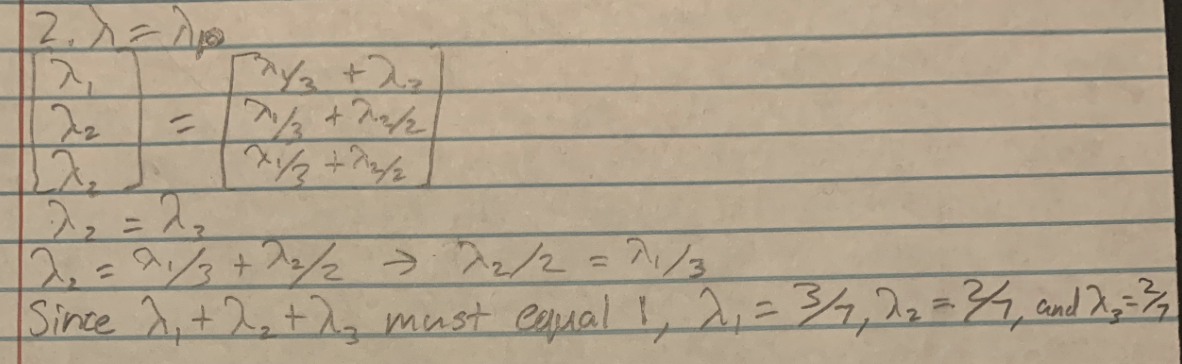 2. λ = λp
[λ₁ λ₂ λ₂] = [λ₁/3 + λ₃ λ₁/3 + λ₂/2 λ₁/3 + λ₂/2]
λ₂ = λ₃
λ₂ = λ₁/3 + λ₂/2 → λ₂/2 = λ₁/3
Since λ₁ + λ₂ + λ₃ must equal 1, λ₁ = 3/7, λ₂ = 2/7, and λ₃ = 2/7